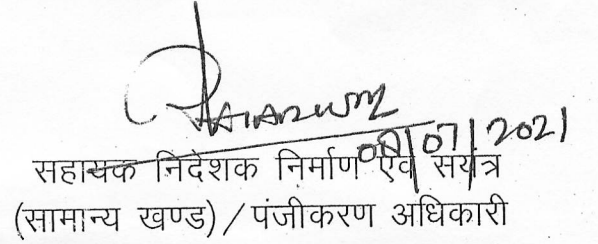 08/07/2021
सहायक निदेशक निर्माण एवं सयंत्र
(सामान्य खण्ड) / पंजीकरण अधिकारी